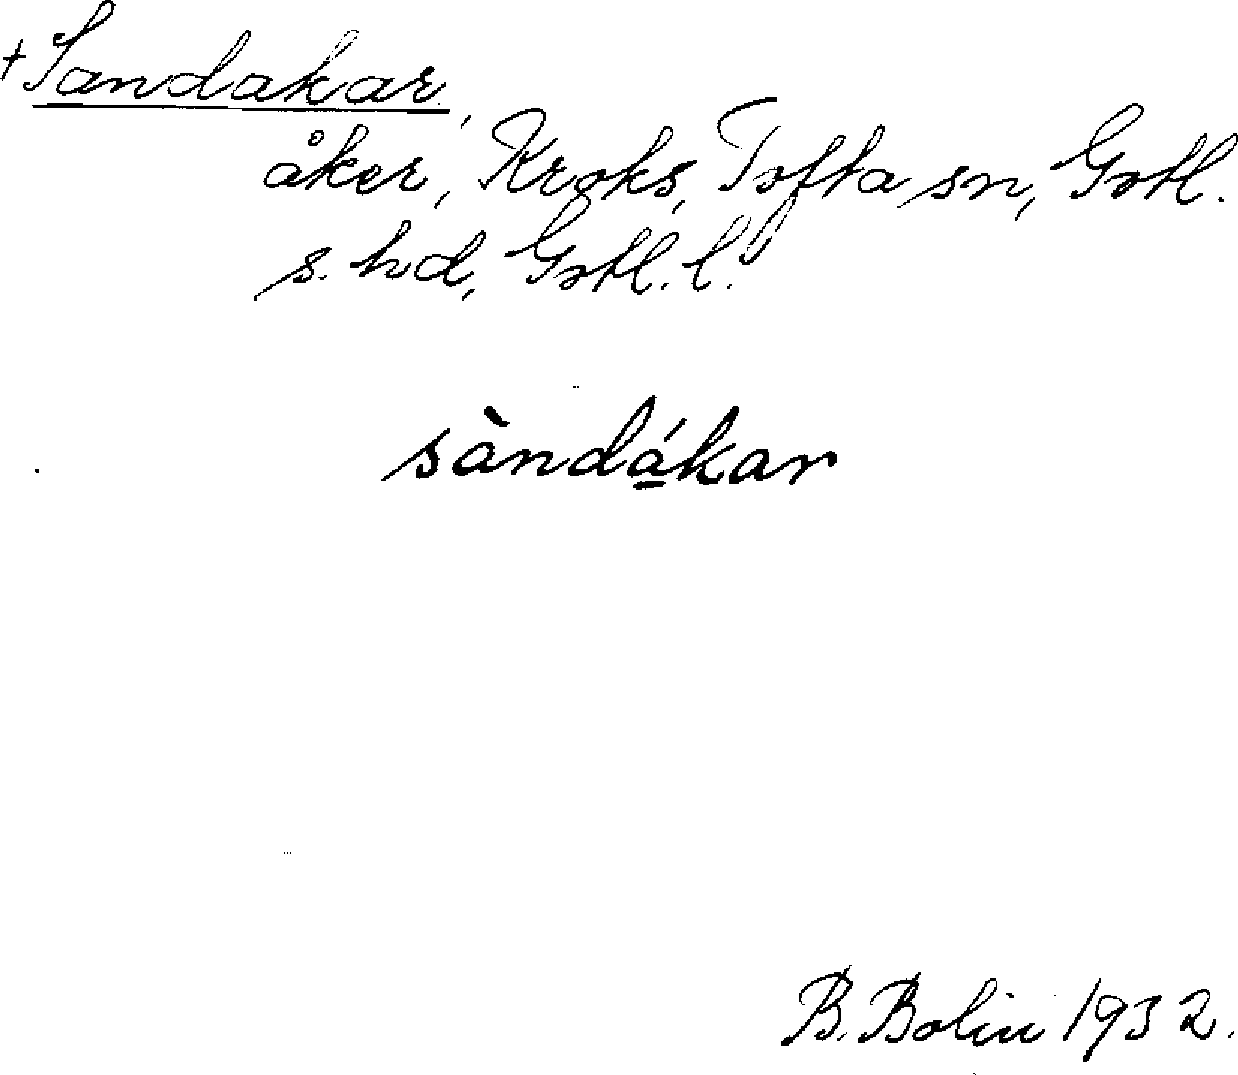 +Sandakar,
åker, Kroks, Tofta sn, Gotl.
s. hd, Gotl. l.
sàndá̱kar
B. Bolin 1932.